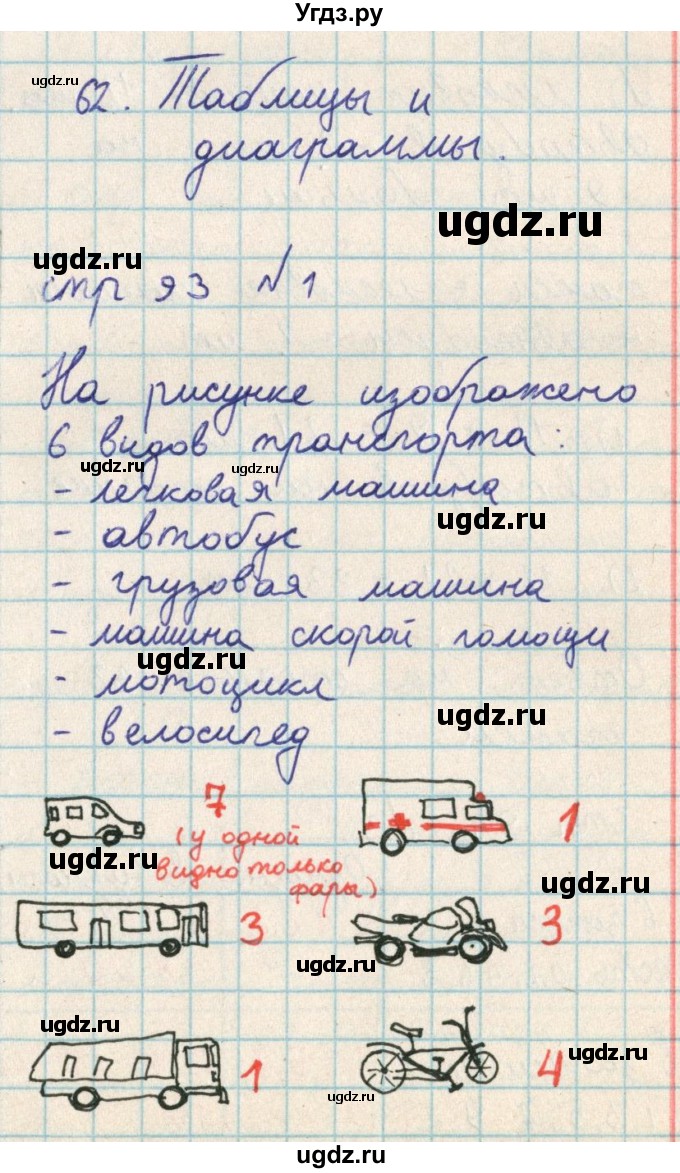 Угдз.ру
ugdz.ru
62. Таблицы и
диаграммы.
ugdz.ru
ugdz.ru
стр 93 №1
На рисунке изображено
6 видов транспорта:
ugdz.ru
ugdz.ru
- легковая машина
ugdz.ru
- автобус
- грузовая машина
- машина скорой помощи
ugdz.ru
- мотоцикл
ugdz.ru
- велосипед
7
(у одной
видно только
фары)
1
ugdz.ru
ugdz.ru
3
3
ugdz.ru
ugdz.ru
1
4
ugdz.ru
ugdz.ru
ugdz.ru